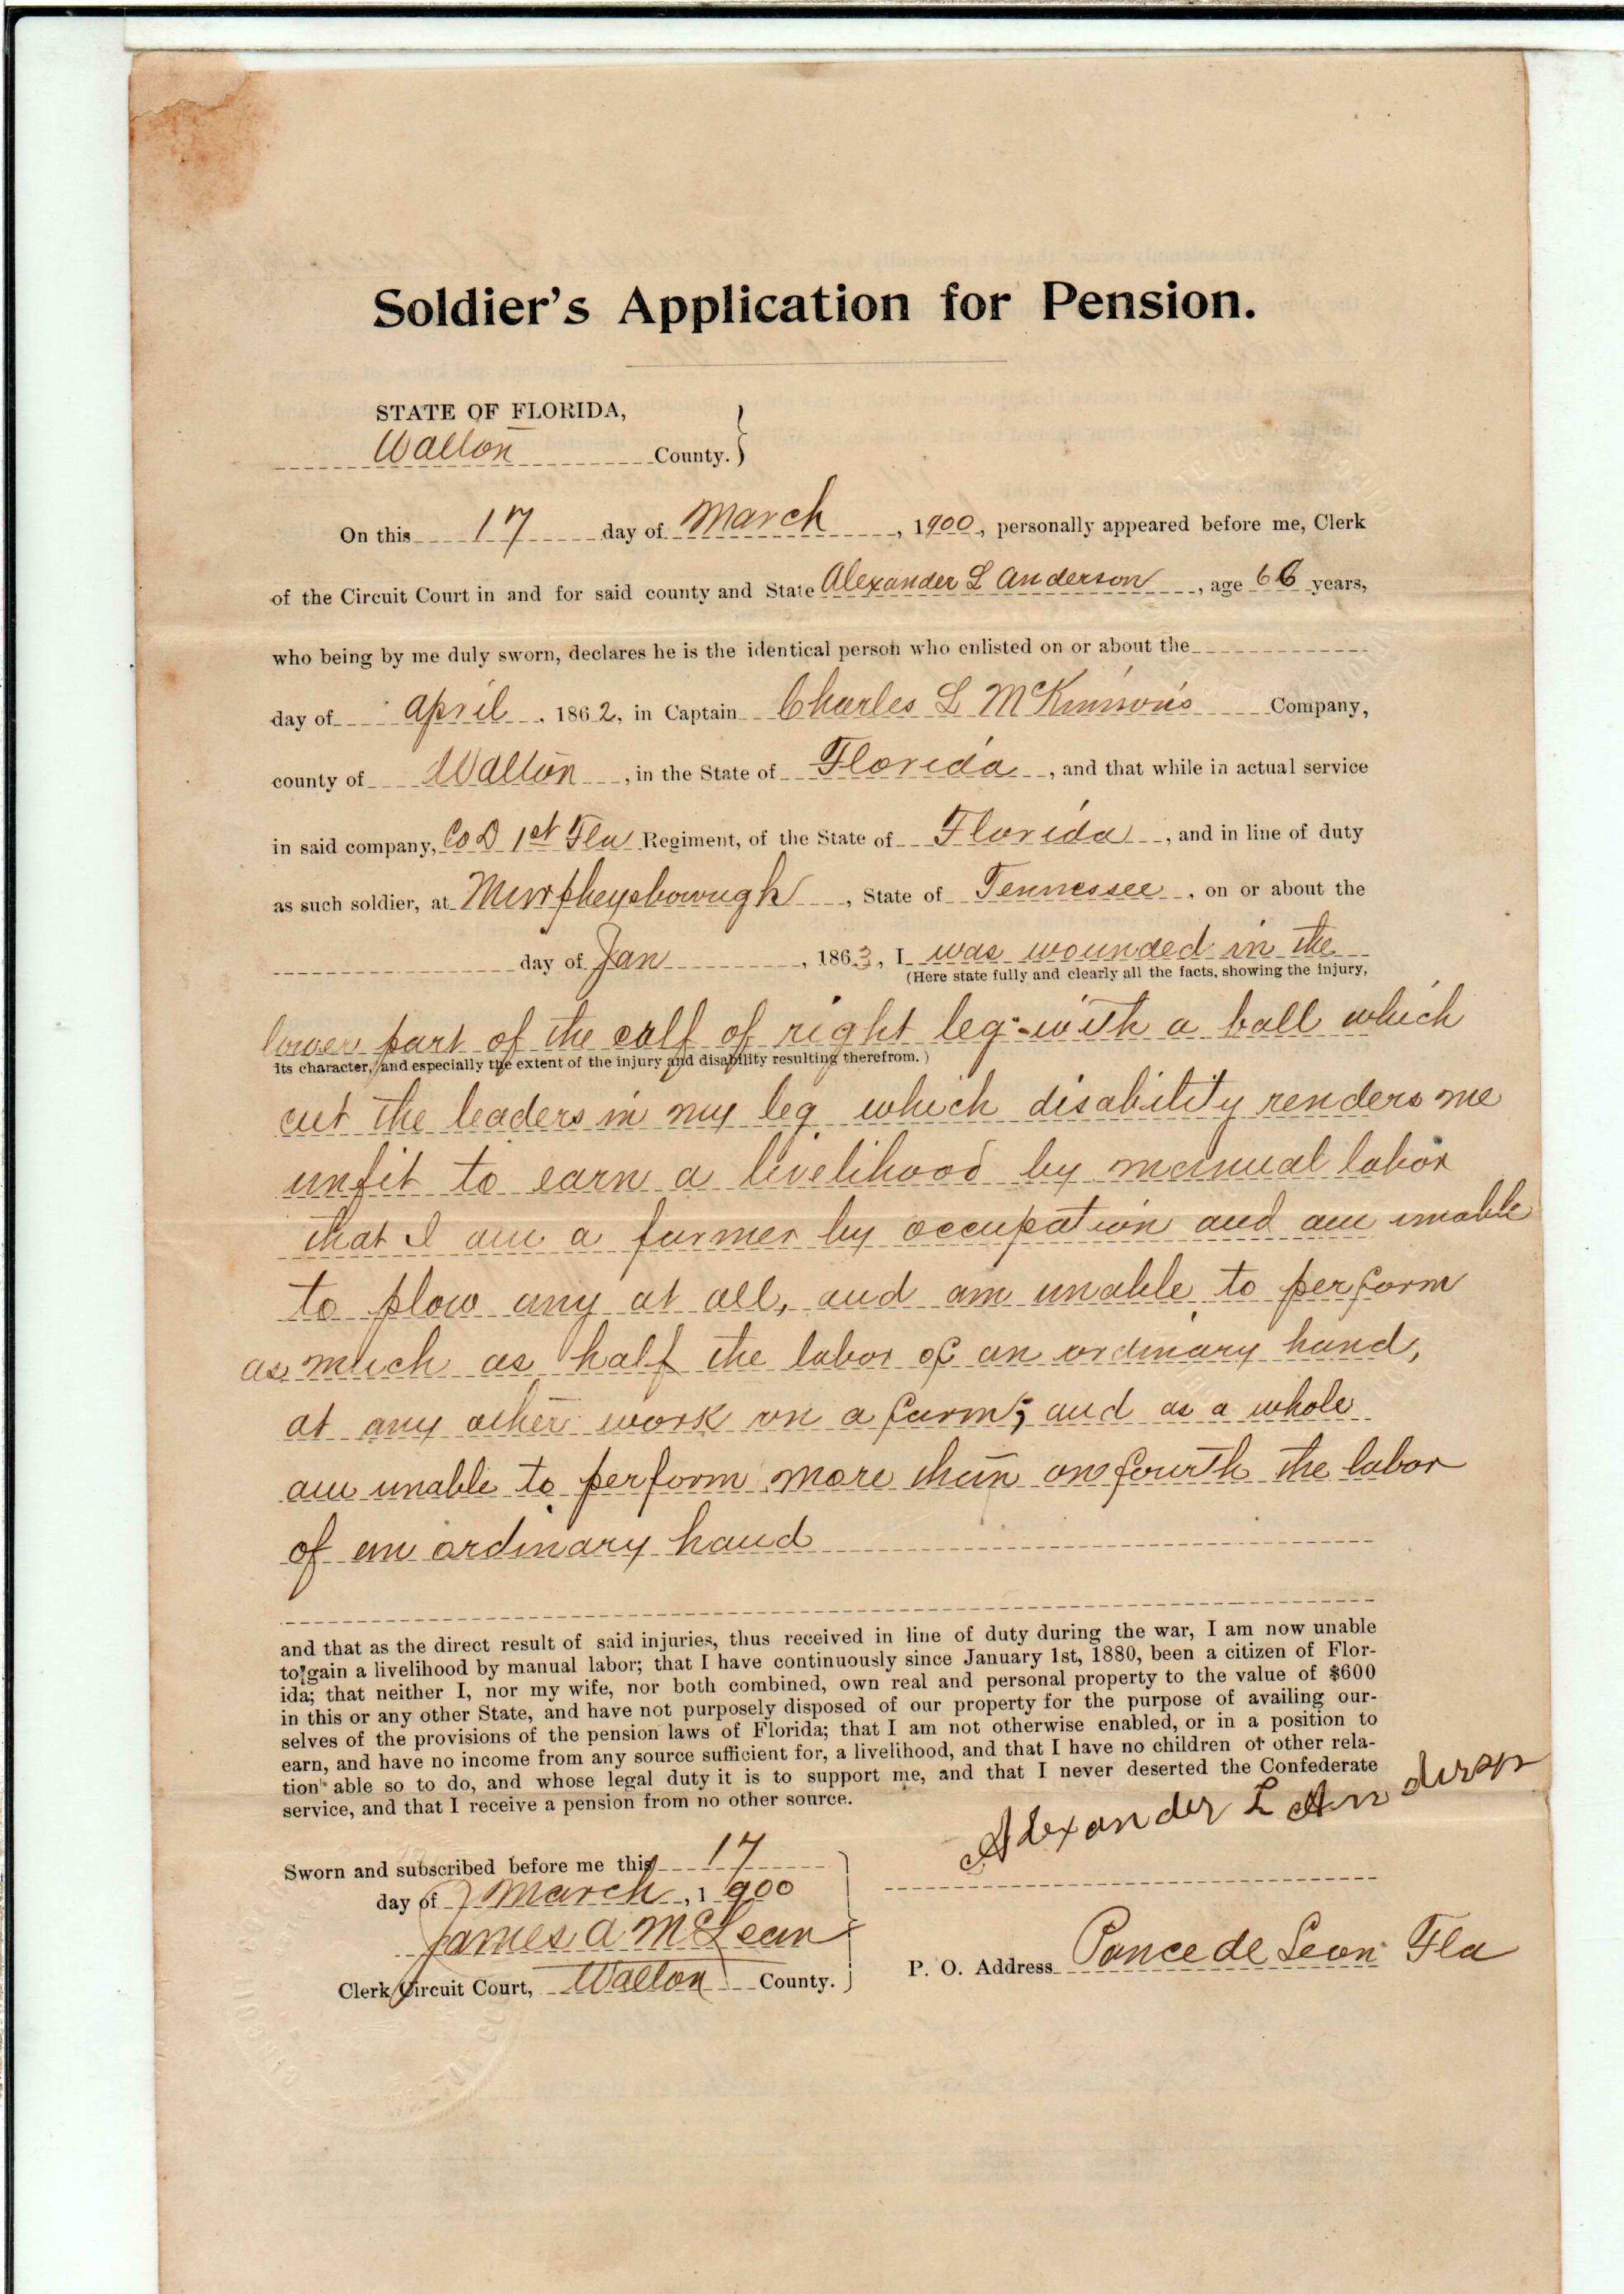 Soldier's Application for Pension.
STATE OF FLORIDA,
Walton County.
On this 17 day of March, 1900, personally appeared before me, Clerk
of the Circuit Court in and for said county and State Alexander L Anderson, age 66 years,
who being by me duly sworn, declares he is the identical person who enlisted on or about the
day of April, 1862, in Captain Charles L McKinnon's Company,
county of Walton, in the State of Florida, and that while in actual service
in said company, Co D 1st Fla Regiment, of the State of Florida, and in line of duty
as such soldier, at Murfheysborough, State of Tennessee, on or about the
day of Jan, 1863, I was wounded in the
(Here state fully and clearly all the facts, showing the injury,
lower part of the calf of right leg with a ball which
its character, and especially the extent of the injury and disability resulting therefrom.)
cut the leaders in my leg which disability renders me
unfit to earn a livelihood by manual labor
that I am a farmer by occupation and am unable
to plow any at all, and am unable to perform
as much as half the labor of an ordinary hand,
at any other work on a farm; and as a whole
am unable to perform more than one fourth the labor
of an ordinary hand
and that as the direct result of said injuries, thus received in line of duty during the war, I am now unable
to gain a livelihood by manual labor; that I have continuously since January 1st, 1880, been a citizen of Flor-
ida; that neither I, nor my wife, nor both combined, own real and personal property to the value of $600
in this or any other State, and have not purposely disposed of our property for the purpose of availing our-
selves of the provisions of the pension laws of Florida; that I am not otherwise enabled, or in a position to
earn, and have no income from any source sufficient for, a livelihood, and that I have no children or other rela-
tion able so to do, and whose legal duty it is to support me, and that I never deserted the Confederate
service, and that I receive a pension from no other source.
Alexander L Anderson
Sworn and subscribed before me this 17
day of March, 1900
James A McLean
Clerk Circuit Court, Walton County.
P. O. Address Ponce de Leon Fla